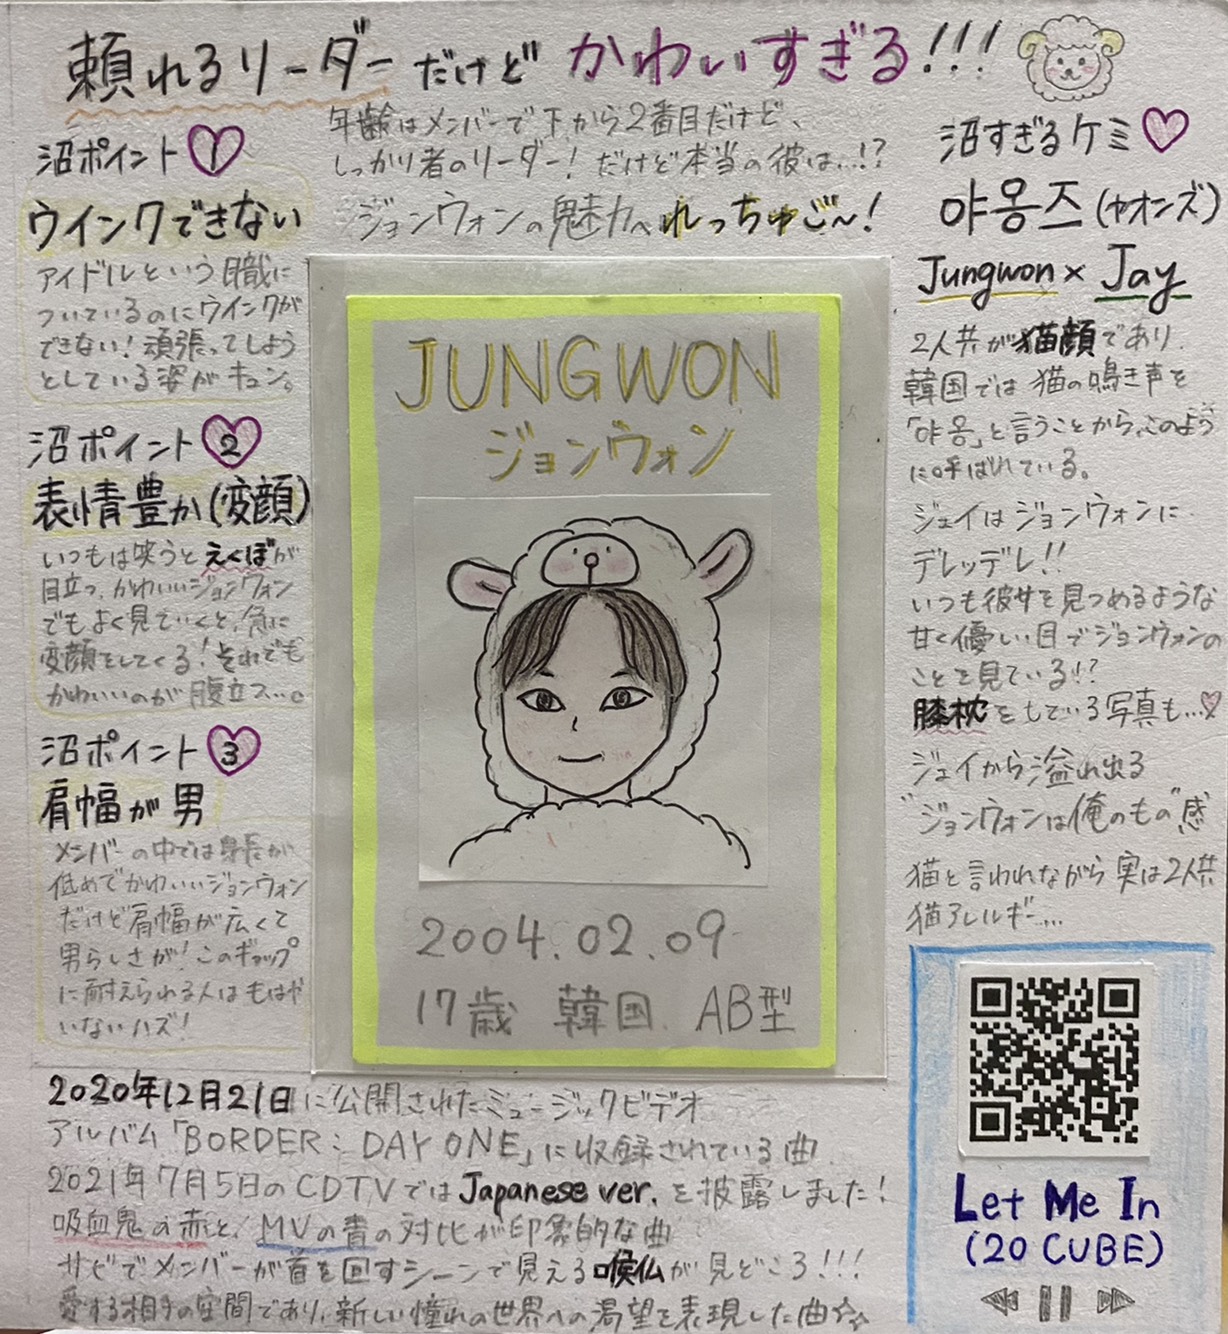 頼れるリーダーだけど かわいすぎる!!!
年齢はメンバーで下から2番目だけど、
しっかり者のリーダー! だけど本当の彼は…!?
ジョンウォンの魅力へれっちゅご〜!
沼ポイント 1
ウインクできない
アイドルという職に
ついているのにウインクが
できない! 頑張ってしよう
としている姿がキュン。
沼ポイント 2
表情豊か(変顔)
いつもは笑うとえくぼが
目立つ、かわいいジョンウォン
でもよく見ていくと、急に
変顔をしてくる! それでも
かわいいのが腹立つ…。
沼ポイント 3
肩幅が男
メンバーの中では身長が
低めでかわいいジョンウォン
だけど肩幅が広くて
男らしさが! このギャップ
に耐えられる人はもはや
いないハズ!
JUNGWON
ジョンウォン
2004.02.09
17歳 韓国 AB型
沼すぎるケミ
야옹즈(ヤオンズ)
Jungwon × Jay
2人共が猫顔であり、
韓国では猫の鳴き声を
「야옹」と言うことから、このよう
に呼ばれている。
ジェイはジョンウォンに
デレッデレ!!
いつも彼女を見つめるような
甘く優しい目でジョンウォンの
ことを見ている!?
膝枕をしている写真も…
ジェイから溢れ出る
"ジョンウォンは俺のもの"感
猫と言われながら実は2人共
猫アレルギー…
2020年12月21日に公開されたミュージックビデオ
アルバム「BORDER : DAY ONE」に収録されている曲
2021年7月5日のCDTVではJapanese ver.を披露しました!
吸血鬼の赤と、MVの青の対比が印象的な曲
サビでメンバーが首を回すシーンで見える喉仏が見どころ!!!
愛する相手の空間であり、新しい憧れの世界への渇望を表現した曲☆☆
Let Me In
(20 CUBE)